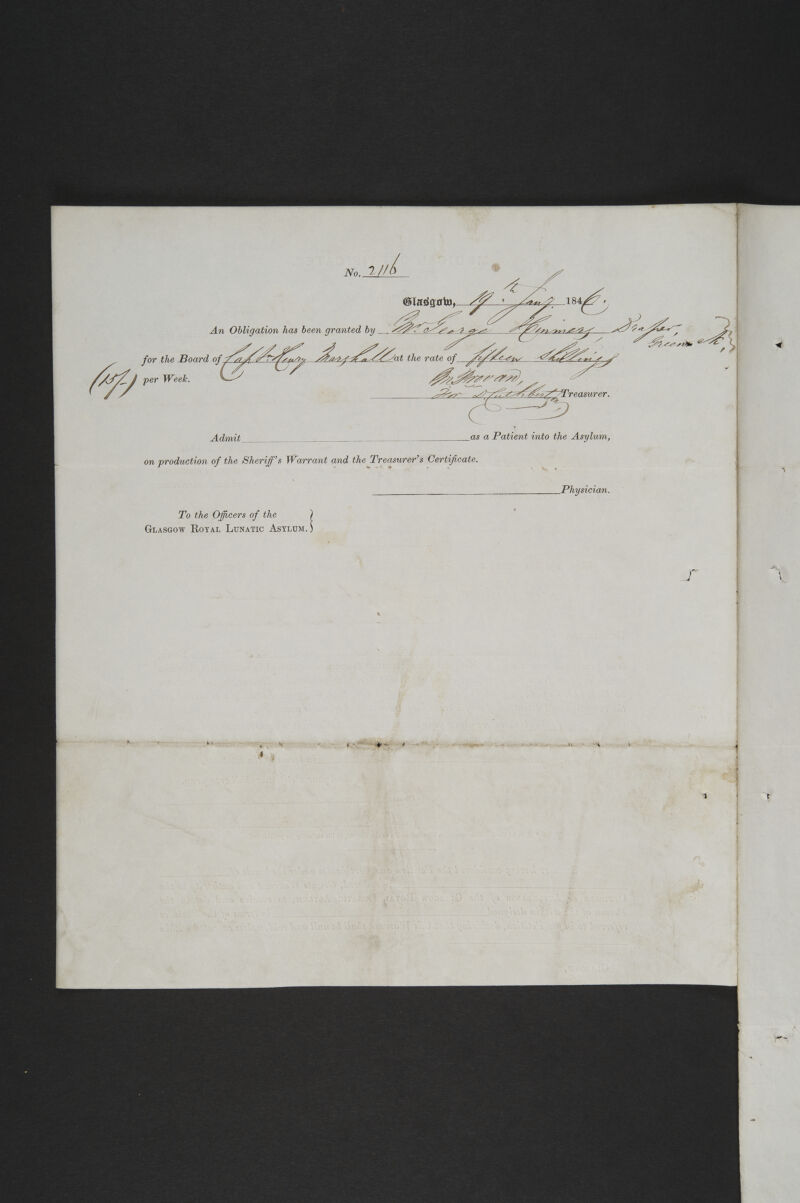 No. 2116
Glasgow, 19th Jany. 1846.
An Obligation has been granted by Mr. George Himmers, Draper,
for the Board of Capt. Henry Marshall at the rate of fifteen Shillings
(15/-) per Week.
Wm Provan,
For D. Cuthbertson Treasurer.
Admit as a Patient into the Asylum,
on production of the Sheriff's Warrant and the Treasurer's Certificate.
Physician.
To the Officers of the
GLASGOW ROYAL LUNATIC ASYLUM.